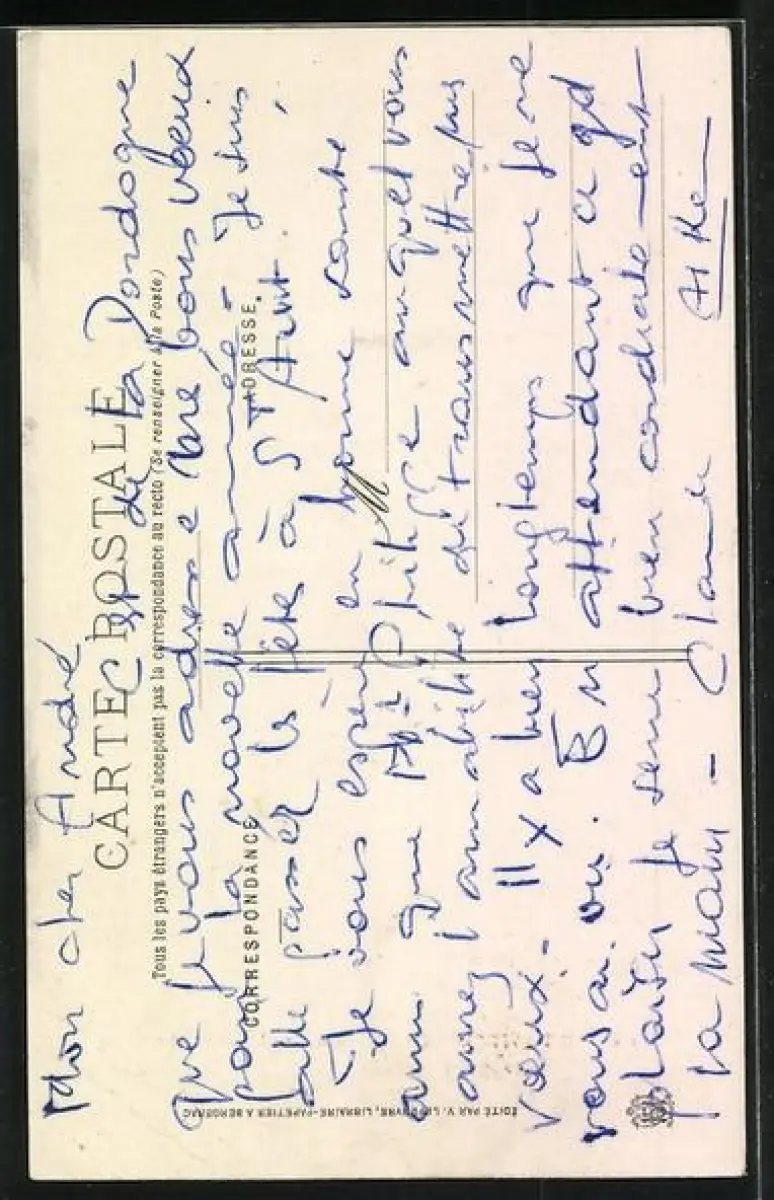 Mon cher André
C'est de la Dordogne
que je vous adresse mes bons voeux
pour la nouvelle année - Je suis
allé passer les fêtes à St
Je vous espère en bonne santé
ainsi que Mr Philippe auquel vous
aurez l'amabilité de transmettre mes
voeux. - Il y a bien longtemps que je ne
vous ai vu. En attendant ce gd
plaisir je serre bien cordialement
la main - Claude
CARTE POSTALE
Tous les pays étrangers n'acceptent pas la correspondance au recto (Se renseigner à la Poste)
CORRESPONDANCE
ADRESSE
ÉDITÉ PAR V. LIBRAIRE-PAPETIER A BERGERAC